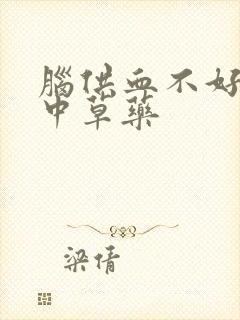 腦供血不好
中草藥
梁倩